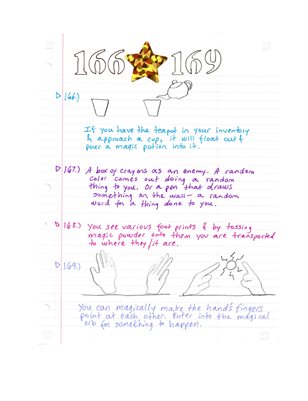 166 169
166.)
If you have the teapot in your inventory
& approach a cup, it will float out &
pour a magic potion into it.
167.) A box of crayons as an enemy. A random
color comes out doing a random
thing to you. Or a pen that draws
something on the wall - a random
word for a thing done to you.
168.) You see various foot prints & by tossing
magic powder onto them you are transported
to where they/it are.
169.)
You can magically make the hand's fingers
point at each other. Enter into the magical
orb for something to happen.